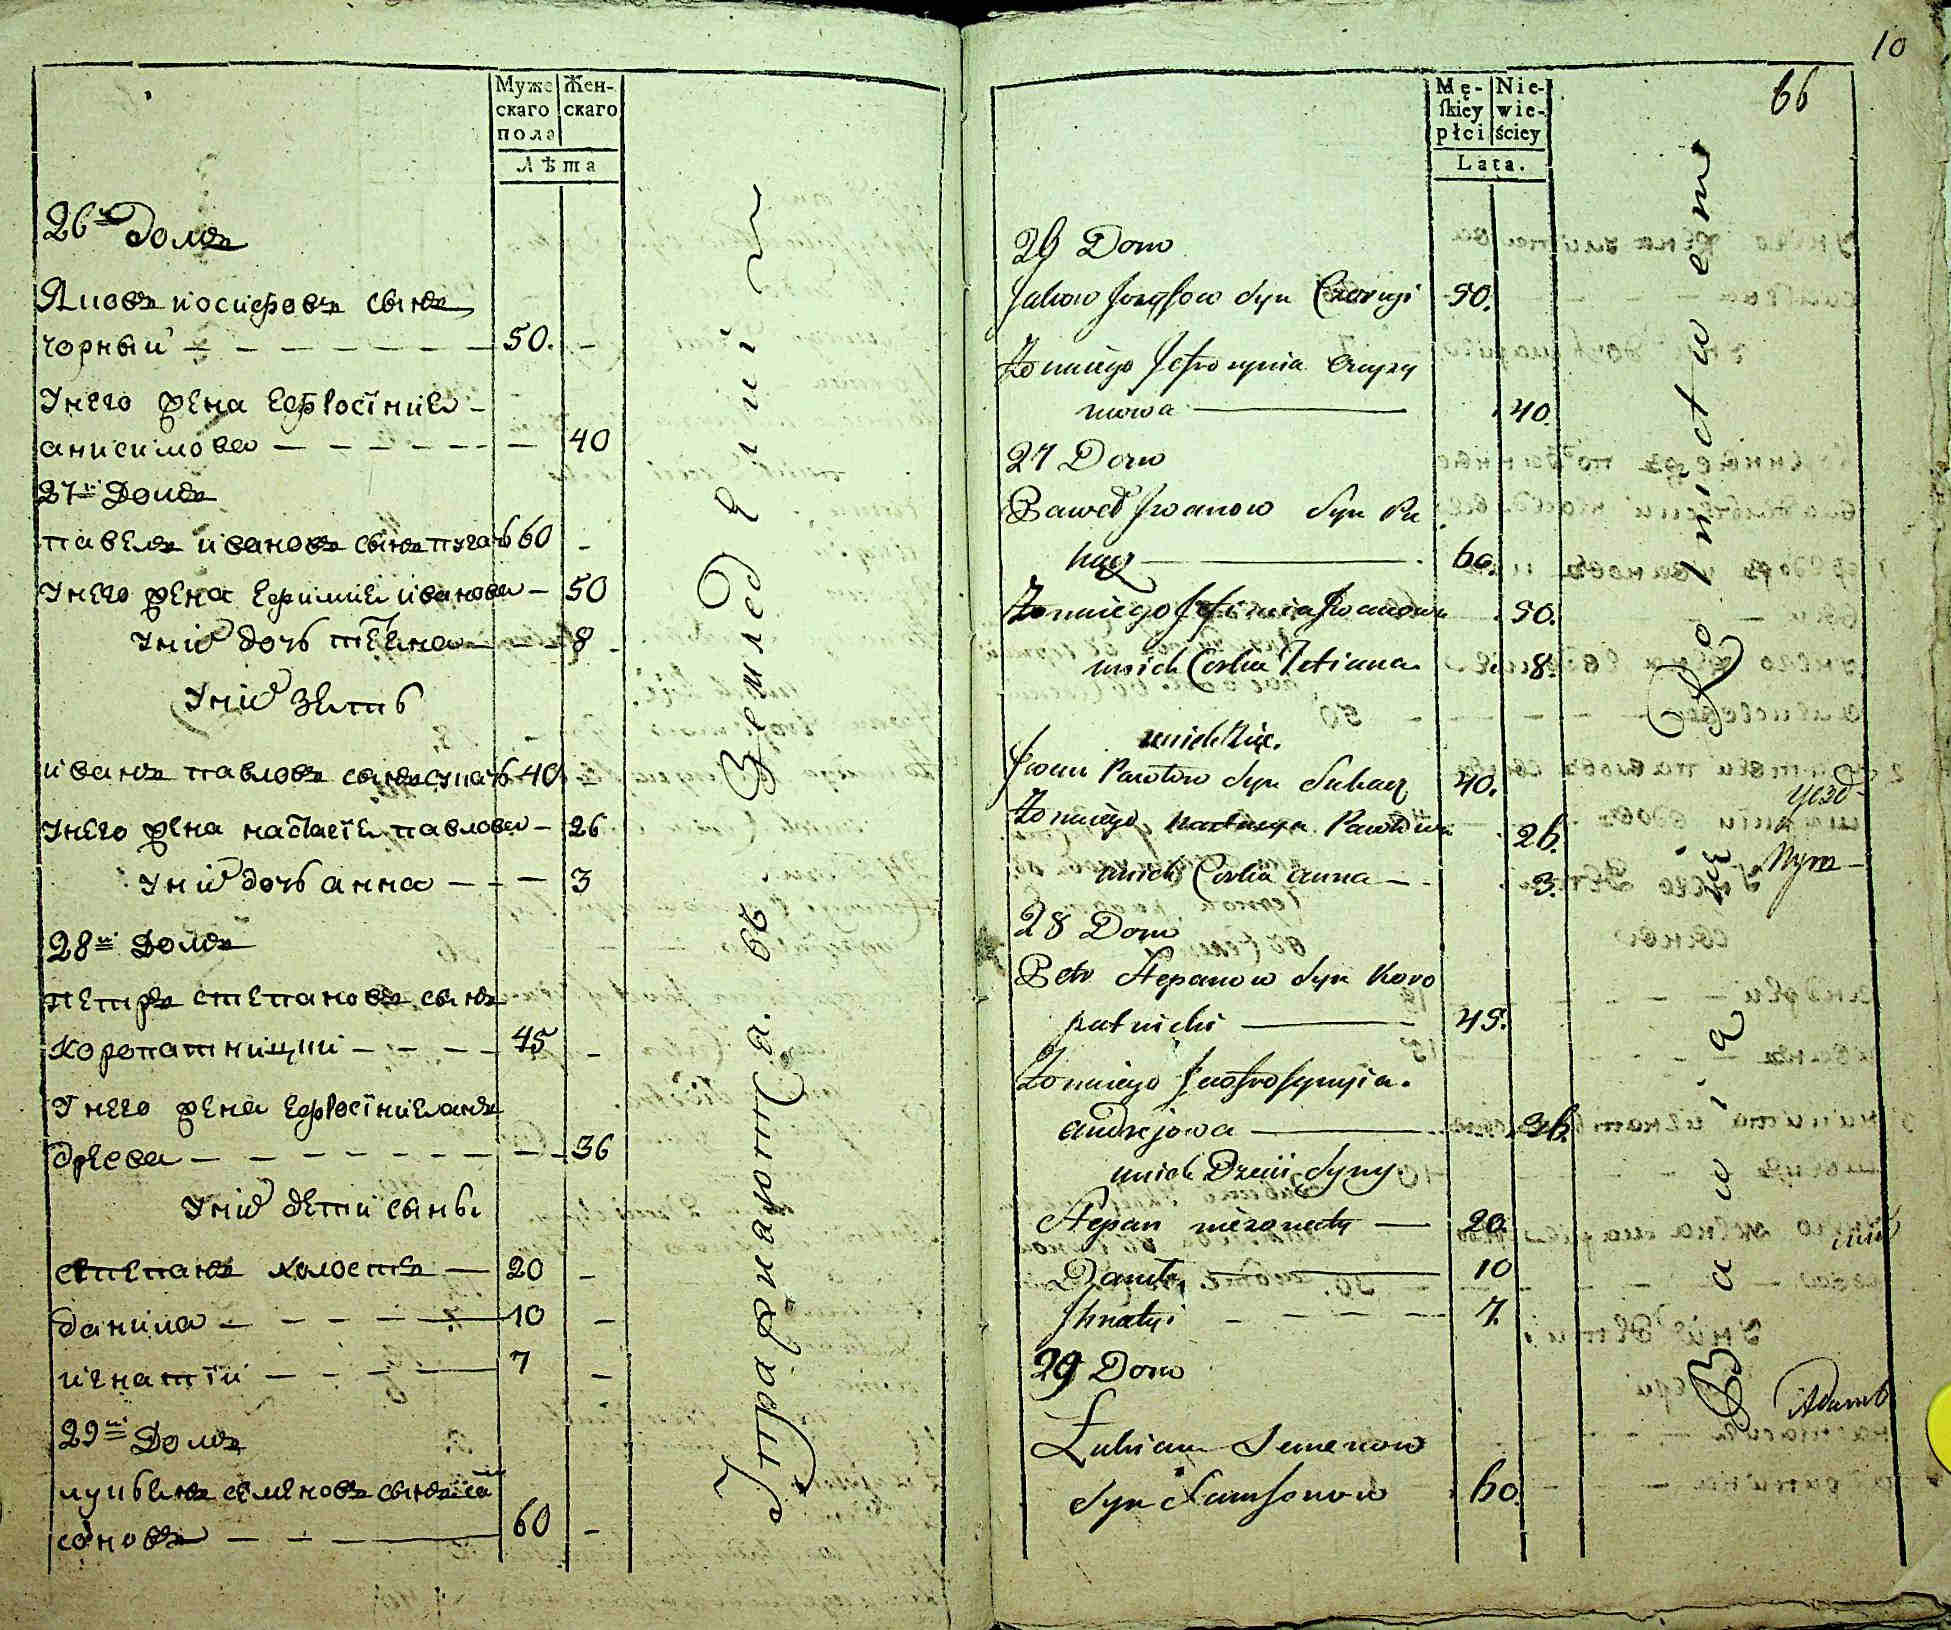 Муже Жен-
скаго скаго
пола
Лѣта
26й Домъ
Яковъ иосифовъ сынъ
чорный 50. –
У него жена ефросиния
анисимова – 40
27й Домъ
павелъ ивановъ сынъ пугачь 60 –
У него жена ефимия иванова – 50
У них дочь татиана – 8
У них зять
иванъ павловъ сынъ сукачь 40 –
У него жена настасия павлова – 26
У них дочь анна – 3
28й Домъ
петръ степановъ сынъ
коропатницкий 45 –
У него жена ефросиния ан
дреева – 36
У них дети сыны
степанъ холостъ 20 –
данила 10 –
игнатий 7 –
29й Домъ
лукьянъ семеновъ сынъ сам
соновъ 60 –
Упражняютца. въ Земледелии
10
66
Mę- Nie-
skiey wie-
płci ściey
Lata.
26 Dom
Jakow Jozefow Syn Czornyi 50.
Żona iego Jefrosynia
mowa 40.
27 Dom
Paweł Iwanow Syn Pu
hacz 60.
Żona iego Jefimia Iwanowa 50.
u nich Corka Tetiana 8.
u nich Zięć.
Iwan Pawłow Syn Sukacz 40.
Żona iego Nastasya Pawłowa 26.
u nich Corka anna 3.
28 Dom
Petr Stepanow Syn Koro
patnicki 45.
Żona iego Jewfrosynyia.
andrejowa 36.
u nich Dzieci Syny.
Stepan nieżonaty 20.
Daniło 10
Ihnatyi 7.
29 Dom
Łukian Semenow
Syn Samsonow 60.
Bawią się Rolnictwem
уезд
Адамъ